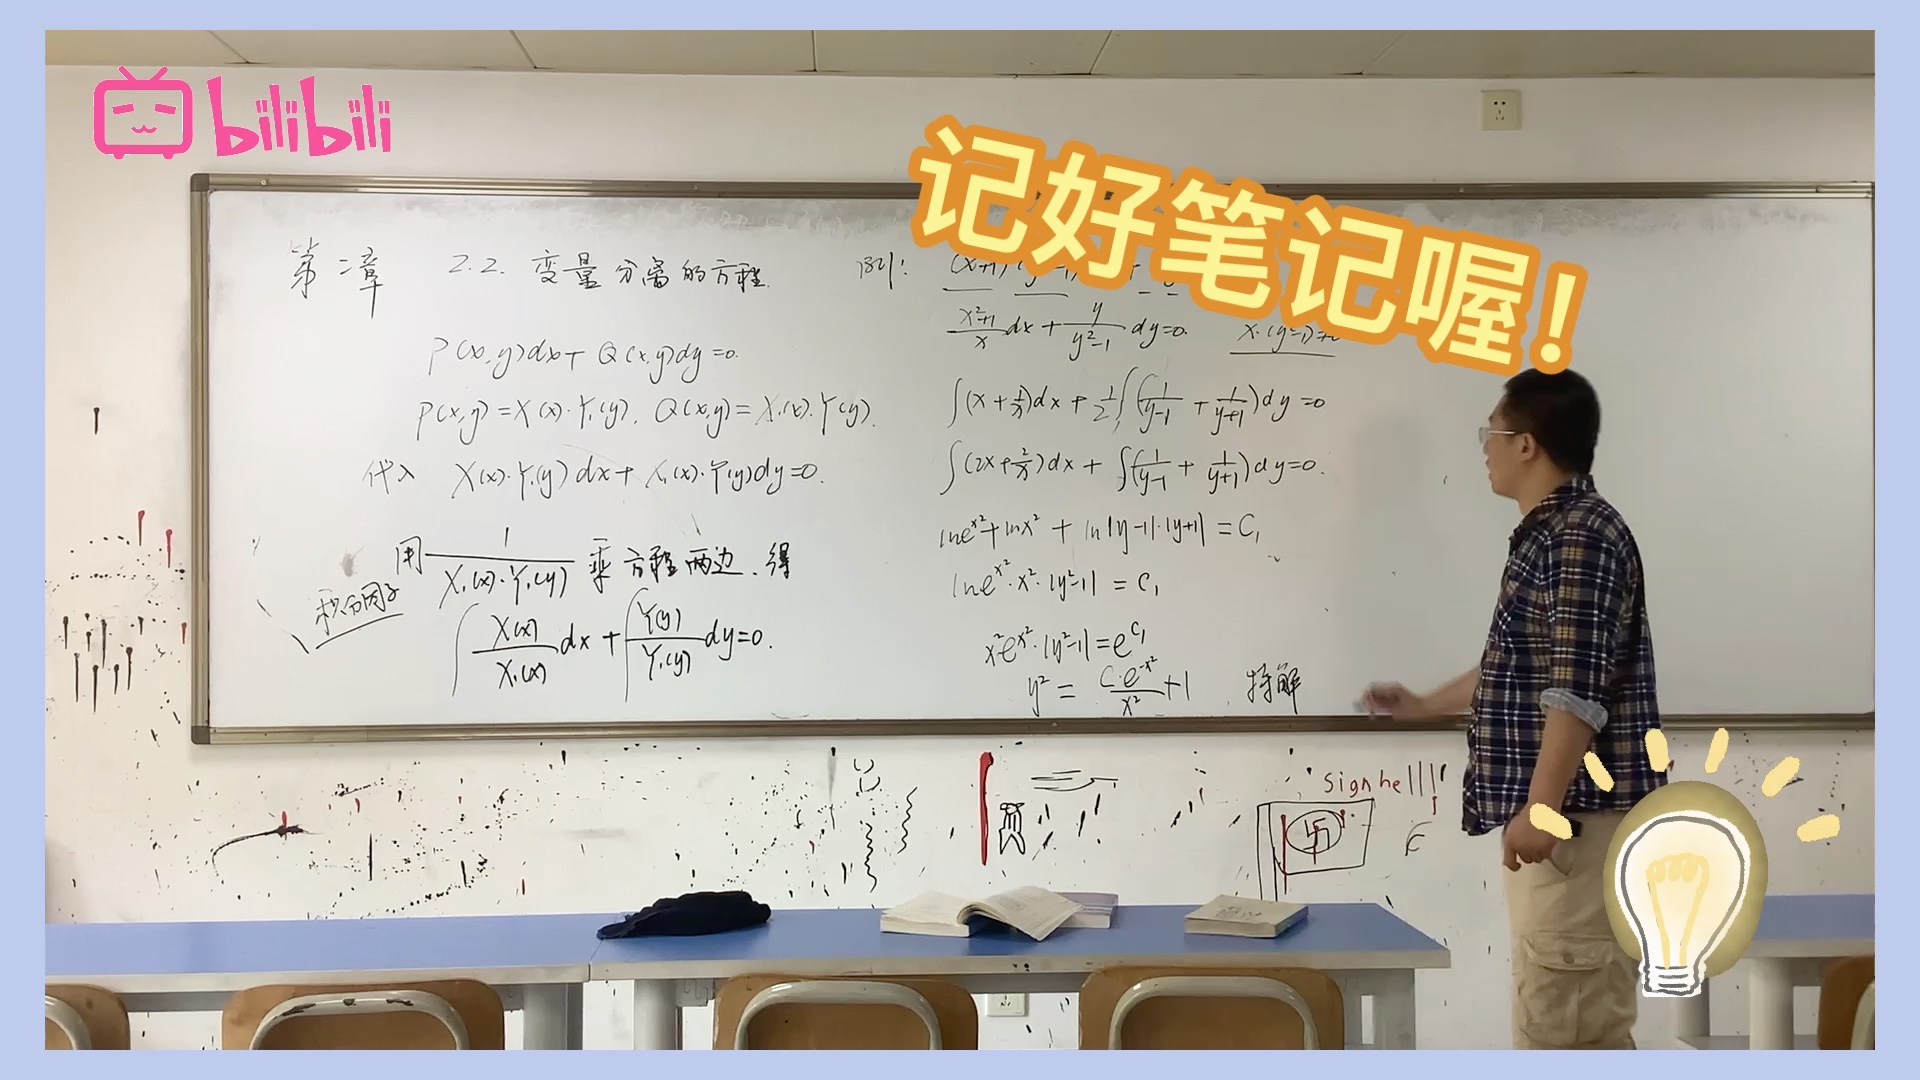 bilibili
记好笔记喔！
第二章 2.2. 变量分离的方程.
P(x,y)dx+Q(x,y)dy=0.
P(x,y)=X(x)·Y₁(y), Q(x,y)=X₁(x)·Y(y).
代入 X(x)·Y₁(y)dx+X₁(x)·Y(y)dy=0.
用 1/(X₁(x)·Y₁(y)) 乘方程两边.得
积分因子
∫X(x)/X₁(x) dx+∫Y(y)/Y₁(y) dy=0.
例:
(x²+1)/x dx+y/(y²-1) dy=0.
∫(x+1/x)dx+1/2∫(1/(y-1)+1/(y+1))dy=0
∫(2x+2/x)dx+∫(1/(y-1)+1/(y+1))dy=0.
lne^x²+lnx²+ln|y-1|·|y+1|=C₁
lne^x²·x²·|y²-1|=C₁
x²e^x²·|y²-1|=e^C₁
y²=C·e^-x²/x²+1 特解